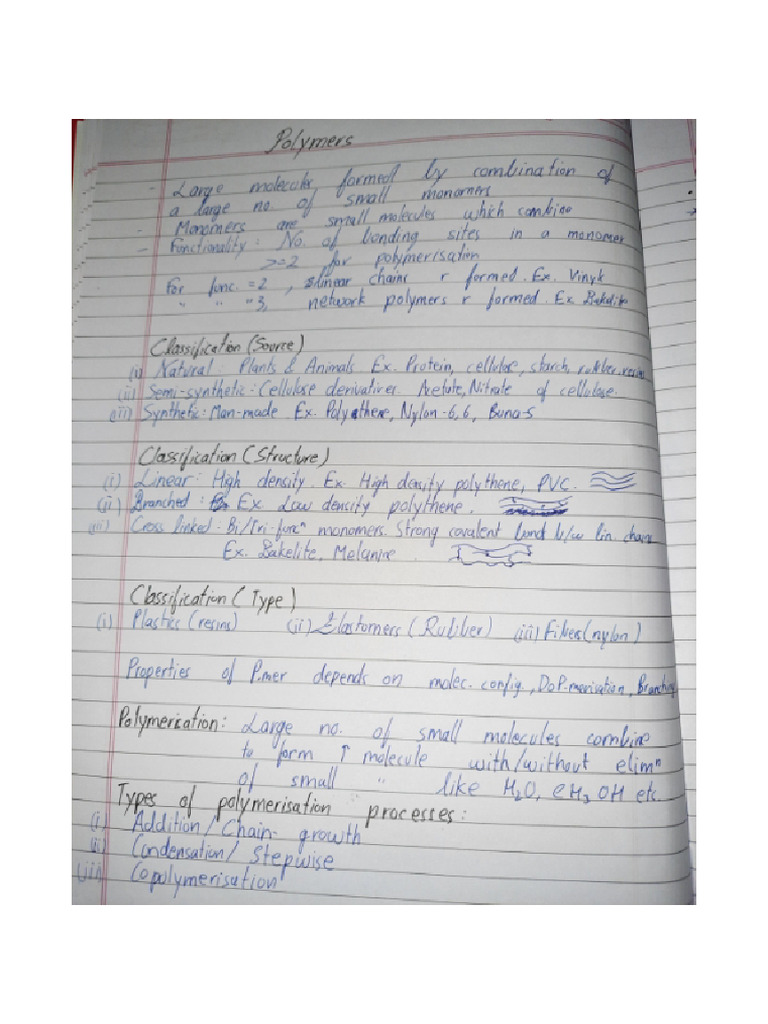 Polymers
- Large molecules formed by combination of
a large no. of small monomers
Monomers are small molecules which combine
- Functionality : No. of bonding sites in a monomer
>=2 for polymerisation
For func. = 2 , linear chains r formed. Ex. Vinyl
" " " 3, network polymers r formed. Ex. Bakelite
Classification (Source)
(i) Natural : Plants & Animals Ex. Protein, cellulose, starch, rubber, resins
(ii) Semi-synthetic : Cellulose derivatives. Acetate, Nitrate of cellulose.
(iii) Synthetic : Man-made Ex. Polyethene, Nylon-6,6, Buna-S
Classification (Structure)
(i) Linear : High density. Ex. High density polythene, PVC.
(ii) Branched : Ex Low density polythene.
(iii) Cross linked : Bi/Tri-funcⁿ monomers. Strong covalent bond b/w lin. chains
Ex. Bakelite, Melanine
Classification ( Type )
(i) Plastics (resins) (ii) Elastomers (Rubber) (iii) Fibers (nylon)
Properties of P.mer depends on molec. config, Do P.merisation, Branching
Polymerisation : Large no. of small molecules combine
to form ↑ molecule with/without elimⁿ
of small " like H₂O, CH₃OH etc.
Types of polymerisation processes :
(i) Addition / Chain-growth
(ii) Condensation / Stepwise
(iii) Copolymerisation